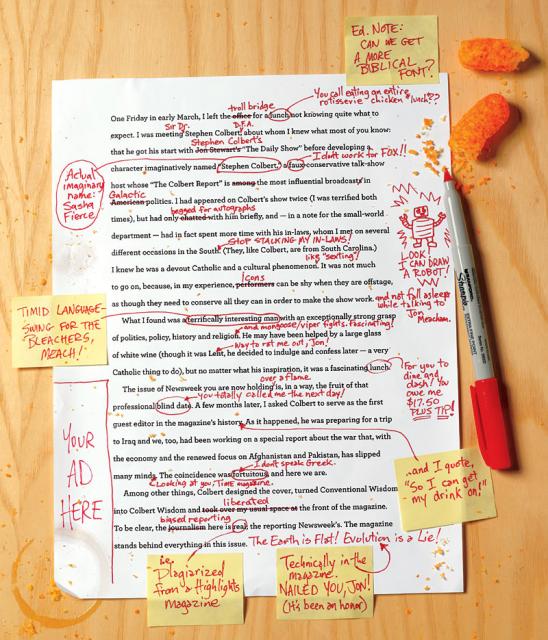 Ed. NOTE:
CAN WE GET
A MORE
BIBLICAL
FONT?
You call eating an entire
rotisserie chicken "lunch"??
troll bridge
One Friday in early March, I left the office for a lunch not knowing quite what to
Sir Dr. D.F.A.
expect. I was meeting Stephen Colbert, about whom I knew what most of you know:
Stephen Colbert's
that he got his start with Jon Stewart's "The Daily Show" before developing a
I don't work for FOX!!
character imaginatively named "Stephen Colbert," a faux-conservative talk-show
Actual
imaginary
name:
Sasha
Fierce
host whose "The Colbert Report" is among the most influential broadcasts in
Galactic
American politics. I had appeared on Colbert's show twice (I was terrified both
begged for autographs
times), but had only chatted with him briefly, and — in a note for the small-world
department — had in fact spent more time with his in-laws, whom I met on several
STOP STALKING MY IN-LAWS!
different occasions in the South. (They, like Colbert, are from South Carolina.)
like "sexting"!
I knew he was a devout Catholic and a cultural phenomenon. It was not much
Icons
to go on, because, in my experience, performers can be shy when they are offstage,
LOOK!
I CAN DRAW
A ROBOT!
as though they need to conserve all they can in order to make the show work.
and not fall asleep
while talking to
Jon
Meacham.
TIMID LANGUAGE-
SWING FOR THE
BLEACHERS,
MEACH!
What I found was a terrifically interesting man with an exceptionally strong grasp
and mongoose/viper fights. Fascinating!
of politics, policy, history and religion. He may have been helped by a large glass
Way to rat me out, Jon!
of white wine (though it was Lent, he decided to indulge and confess later — a very
Catholic thing to do), but no matter what his inspiration, it was a fascinating lunch.
For you to
dine and
dash! You
owe me
$17.50
PLUS TIP!
over a flame
The issue of Newsweek you are now holding is, in a way, the fruit of that
you totally called me the next day!
professional blind date. A few months later, I asked Colbert to serve as the first
guest editor in the magazine's history. As it happened, he was preparing for a trip
to Iraq and we, too, had been working on a special report about the war that, with
the economy and the renewed focus on Afghanistan and Pakistan, has slipped
I don't speak Greek.
many minds. The coincidence was fortuitous, and here we are.
Looking at you, TIME magazine.
...and I quote,
"So I can get
my drink on!"
YOUR
AD
HERE
Among other things, Colbert designed the cover, turned Conventional Wisdom
liberated
into Colbert Wisdom and took over my usual space at the front of the magazine.
biased reporting
To be clear, the journalism here is real, the reporting Newsweek's. The magazine
stands behind everything in this issue. The Earth is Flat! Evolution is a Lie!
i.e.
Plagiarized
from a Highlights
magazine
Technically in the
magazine.
NAILED YOU, JON!
(It's been an honor)
Sharpie